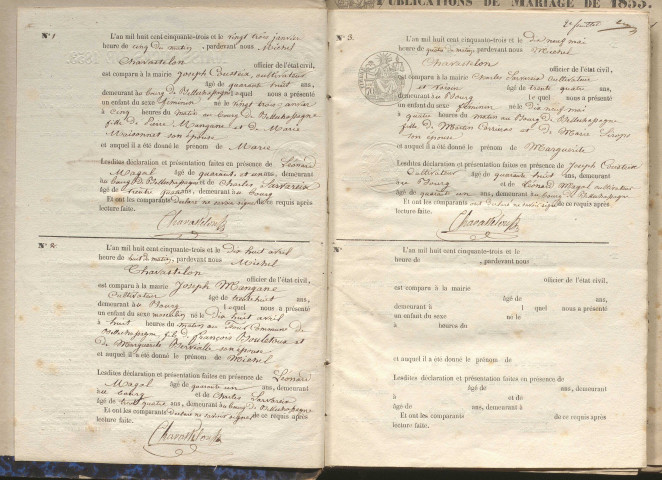 PUBLICATIONS DE MARIAGE DE 1853.
N° 1
L'an mil huit cent cinquante-trois et le vingt trois janvier
heure de cinq du matin, pardevant nous Michel
Chavastelon officier de l'état civil,
est comparu à la mairie Joseph Cousteix, cultivateur
âgé de quarante huit ans,
demeurant au bourg de Bellechapagne Lequel nous a présenté
un enfant du sexe féminin né le vingt trois janvier
à cinq heures du matin au bourg de Bellechapagne
fille de Pierre Mangane et de Marie
Maisonnet son épouse
et auquel il a été donné le prénom de Marie
Lesdites déclaration et présentation faites en présence de Léonard
Magal âgé de quarante et un ans, demeurant
au bourg de Bellechapagne et de Charles Sarvarin
âgé de trente quatre ans, demeurant au bourg
Et ont les comparants déclaré ne savoir signer de ce requis après
lecture faite.
Chavastelon
N° 2
L'an mil huit cent cinquante-trois et le dix huit avril
heure de huit du matin, pardevant nous Michel
Chavastelon officier de l'état civil,
est comparu à la mairie Joseph Mangane
cultivateur âgé de trente huit ans,
demeurant au Bourg l quel nous a présenté
un enfant du sexe masculin né le dix huit avril
à huit heures du matin au commune de
Bellechapagne, fils de François et
de Marguerite son épouse
et auquel il a été donné le prénom de Michel
Lesdites déclaration et présentation faites en présence de Léonard
Magal âgé de quarante un ans, demeurant
au bourg et de Charles Sarvarin
âgé de trente quatre ans, demeurant au bourg de Bellechapagne
Et ont les comparants déclaré ne savoir signer de ce requis après
lecture faite.
Chavastelon
2e feuillet
N° 3.
L'an mil huit cent cinquante-trois et le dix neuf mai
heure de quatre du matin, pardevant nous Michel
Chavastelon officier de l'état civil,
est comparu à la mairie Charles Sarvarin cultivateur
âgé de trente quatre ans,
demeurant au Bourg Le quel nous a présenté
un enfant du sexe féminin né le dix neuf mai
à quatre heures du matin au Bourg de Bellechapagne
fille de Martin et de Marie
son épouse
et auquel il a été donné le prénom de Marguerite
Lesdites déclaration et présentation faites en présence de Joseph Cousteix
Cultivateur âgé de quarante huit ans, demeurant
au Bourg et de Léonard Magal cultivateur
âgé de quarante un ans, demeurant au bourg de Bellechapagne
Et ont les comparants déclaré ne savoir signer de ce requis après
lecture faite.
Chavastelon
N°
L'an mil huit cent cinquante-trois et le
heure de , pardevant nous
officier de l'état civil,
est comparu à la mairie
âgé de ans,
demeurant à l quel nous a présenté
un enfant du sexe né le
à heures du
et auquel il a été donné le prénom de
Lesdites déclaration et présentation faites en présence de
âgé de ans, demeurant
à et de
âgé de ans, demeurant à
Et ont les comparants de ce requis après
lecture faite.